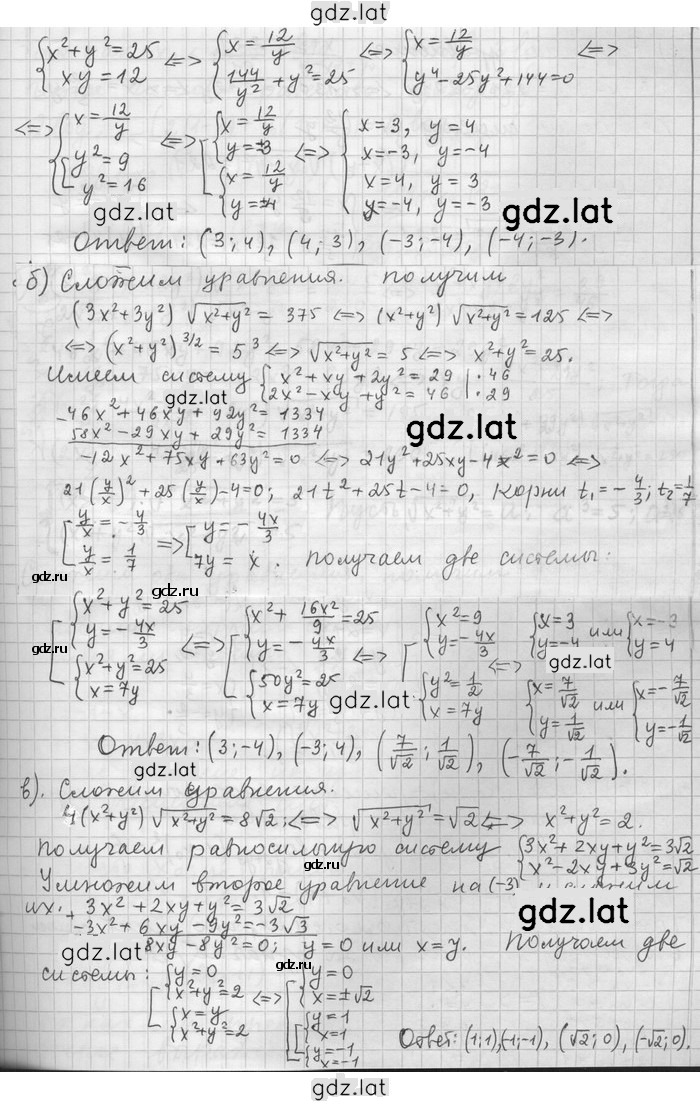 gdz.lat
{x²+y²=25 {xy=12 <=> {x=12/y {144/y²+y²=25 <=> {x=12/y {y⁴-25y²+144=0 <=>
<=> {x=12/y [y²=9 [y²=16 <=> [{x=12/y {y=±3 [{x=12/y {y=±4 <=> {x=3, y=4 x=-3, y=-4 x=4, y=3 y=-4, y=-3
gdz.lat
gdz.lat
Ответ: (3;4), (4;3), (-3;-4), (-4;-3).
б) Сложим уравнения. получим
(3x²+3y²)√x²+y² = 375 <=> (x²+y²)√x²+y² = 125 <=>
<=> (x²+y²)^3/2 = 5³ <=> √x²+y² = 5 <=> x²+y²=25.
Имеем систему {x²+xy+2y²=29 |·46
{2x²-xy+y²=46 |·29
gdz.lat
gdz.lat
-46x²+46xy+92y²=1334
58x²-29xy+29y²=1334
-12x²+75xy+63y²=0 <=> 21y²+25xy-4x²=0 <=>
21(y/x)²+25(y/x)-4=0; 21t²+25t-4=0, корни t₁=-4/3; t₂=1/7
[y/x=-4/3 [y/x=1/7 => [y=-4x/3 [7y=x. получаем две системы:
gdz.ru
gdz.lat
gdz.ru
[{x²+y²=25 {y=-4x/3 [{x²+y²=25 {x=7y <=> [{x²+16x²/9=25 {y=-4x/3 [{50y²=25 {x=7y <=> [{x²=9 {y=-4x/3 [{y²=1/2 {x=7y <=> {x=3 {y=-4 или {x=-3 {y=4 {x=7/√2 {y=1/√2 или {x=-7/√2 {y=-1/√2
gdz.ru
gdz.lat
gdz.lat
Ответ: (3;-4), (-3;4), (7/√2; 1/√2), (-7/√2; -1/√2).
gdz.lat
в). Сложим уравнения.
4(x²+y²)√x²+y²=8√2; <=> √x²+y²=√2 <=> x²+y²=2.
Получаем равносильную систему {3x²+2xy+y²=3√2
{x²-2xy+3y²=√2
gdz.ru
Умножим второе уравнение на (-3) и сложим
их. + 3x²+2xy+y²=3√2
-3x²+6xy-9y²=-3√3
gdz.lat
8xy-8y²=0; y=0 или x=y. Получаем две
gdz.ru
системы: [{y=0 {x²+y²=2 [{x=y {x²+y²=2 <=> [{y=0 {x=±√2 [{y=1 {x=1 [{y=-1 {x=-1
gdz.lat
Ответ: (1;1), (-1;-1), (√2;0), (-√2;0).
gdz.lat